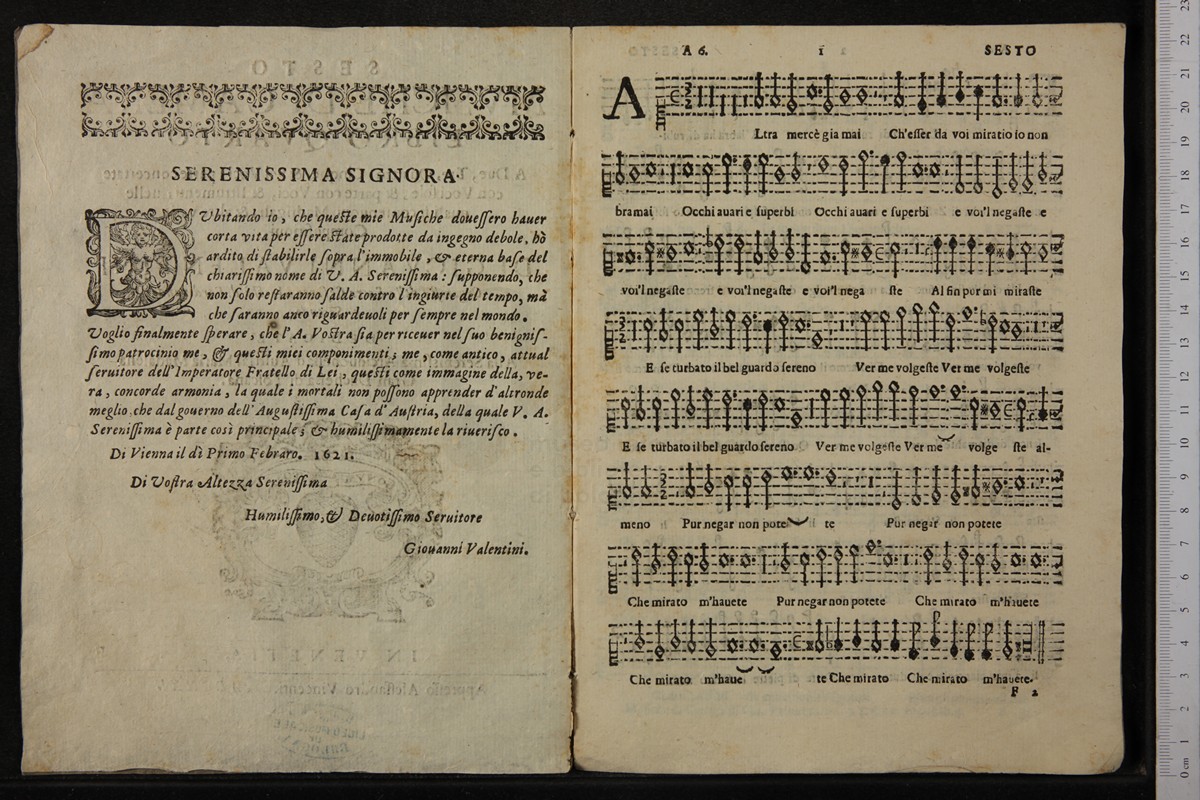 SERENISSIMA SIGNORA.
DVbitando io, che queste mie Musiche douessero hauer
corta vita per essere state prodotte da ingegno debole, hò
ardito di stabilirle sopra l'immobile, & eterna base del
chiarissimo nome di V. A. Serenissima: supponendo, che
non solo restaranno salde contro l'ingiurie del tempo, mà
che saranno anco riguardeuoli per sempre nel mondo.
Voglio finalmente sperare, che l'A. Vostra sia per riceuer nel suo benignis-
simo patrocinio me, & questi miei componimenti; me, come antico, attual
seruitore dell'Imperatore Fratello di Lei, questi come immagine della, ve-
ra, concorde armonia, la quale i mortali non possono apprender d'altronde
meglio, che dal gouerno dell'Augustissima Casa d'Austria, della quale V. A.
Serenissima è parte così principale; & humilissimamente la riuerisco.
Di Vienna il dì Primo Febraro. 1621.
Di Vostra Altezza Serenissima
Humilissimo, & Deuotissimo Seruitore
Giouanni Valentini.
A 6. 1 SESTO
ALtra mercè gia mai Ch'esser da voi mirato io non
bramai Occhi auari e superbi Occhi auari e superbi e voi'l negaste e
voi'l negaste e voi'l negaste e voi'l nega ste Al fin pur mi miraste
E se turbato il bel guardo sereno Ver me volgeste Ver me volgeste
E se turbato il bel guardo sereno Ver me volgeste Ver me volge ste al-
meno Pur negar non pote te Pur negar non potete
Che mirato m'hauete Pur negar non potete Che mirato m'hauete
Che mirato m'haue te Che mirato Che mirato m'hauete.
F 2
0 cm 1 2 3 4 5 6 7 8 9 10 11 12 13 14 15 16 17 18 19 20 21 22 23